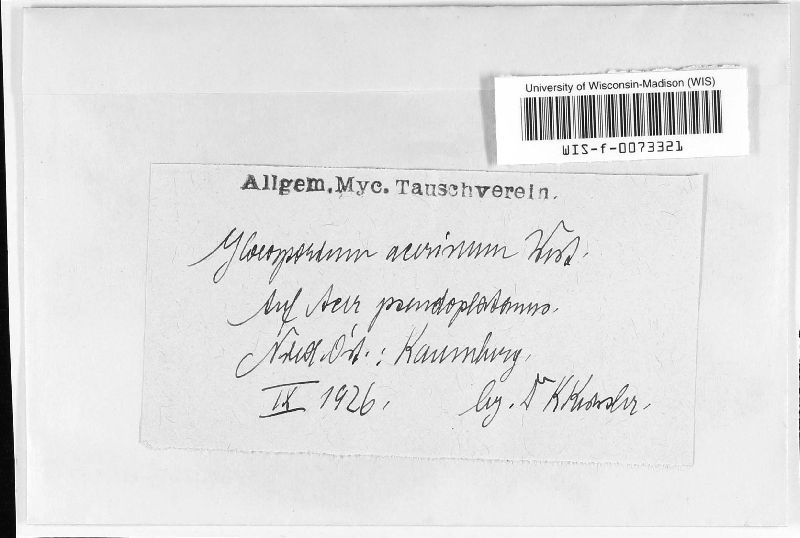 University of Wisconsin-Madison (WIS)
WIS-f-0073321
Allgem. Myc. Tauschverein.
Gloeosporium acerinum West.
Auf Acer pseudoplatanus.
Nied. Öst.: Kaumberg.
IX 1926. leg. Dr K Keissler.